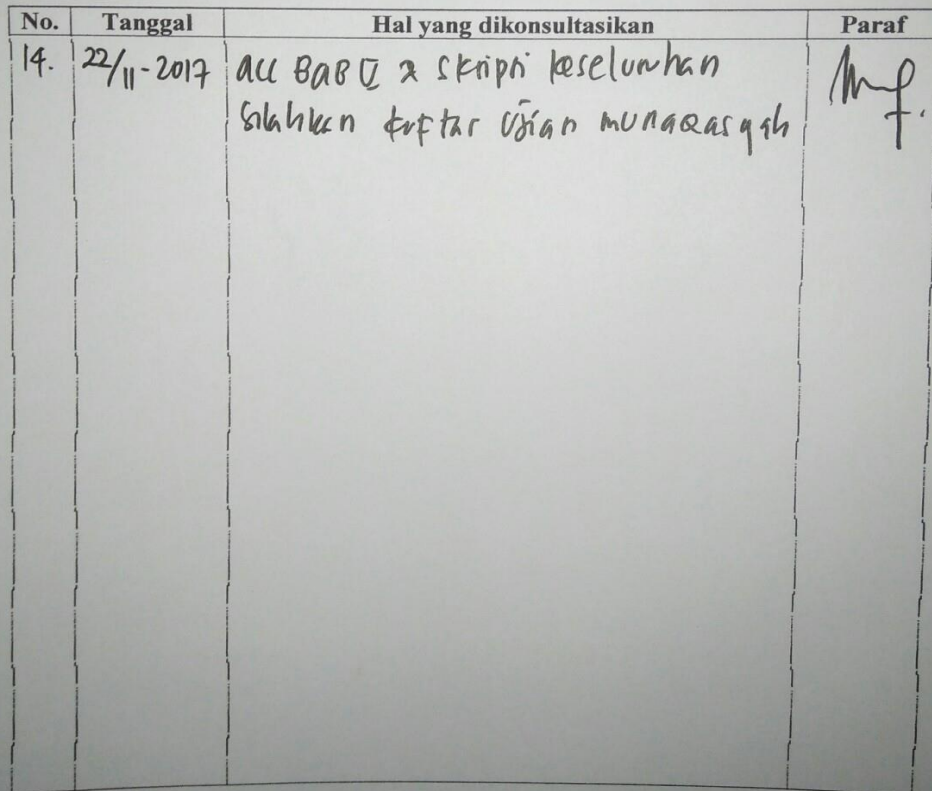 No. Tanggal Hal yang dikonsultasikan Paraf
14. 22/11-2017 acc BAB V & Skripsi keseluruhan
Silahkan daftar Ujian munaqasyah